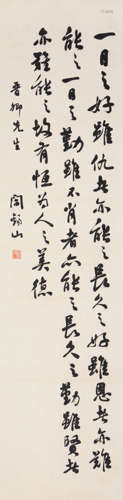 一日之好雖仇者亦能之長久之好雖恩者亦難
能之一日之勤雖不肖者亦能之長久之勤雖賢者
亦難能之故有恒為人之美德
晉卿先生
閻錫山